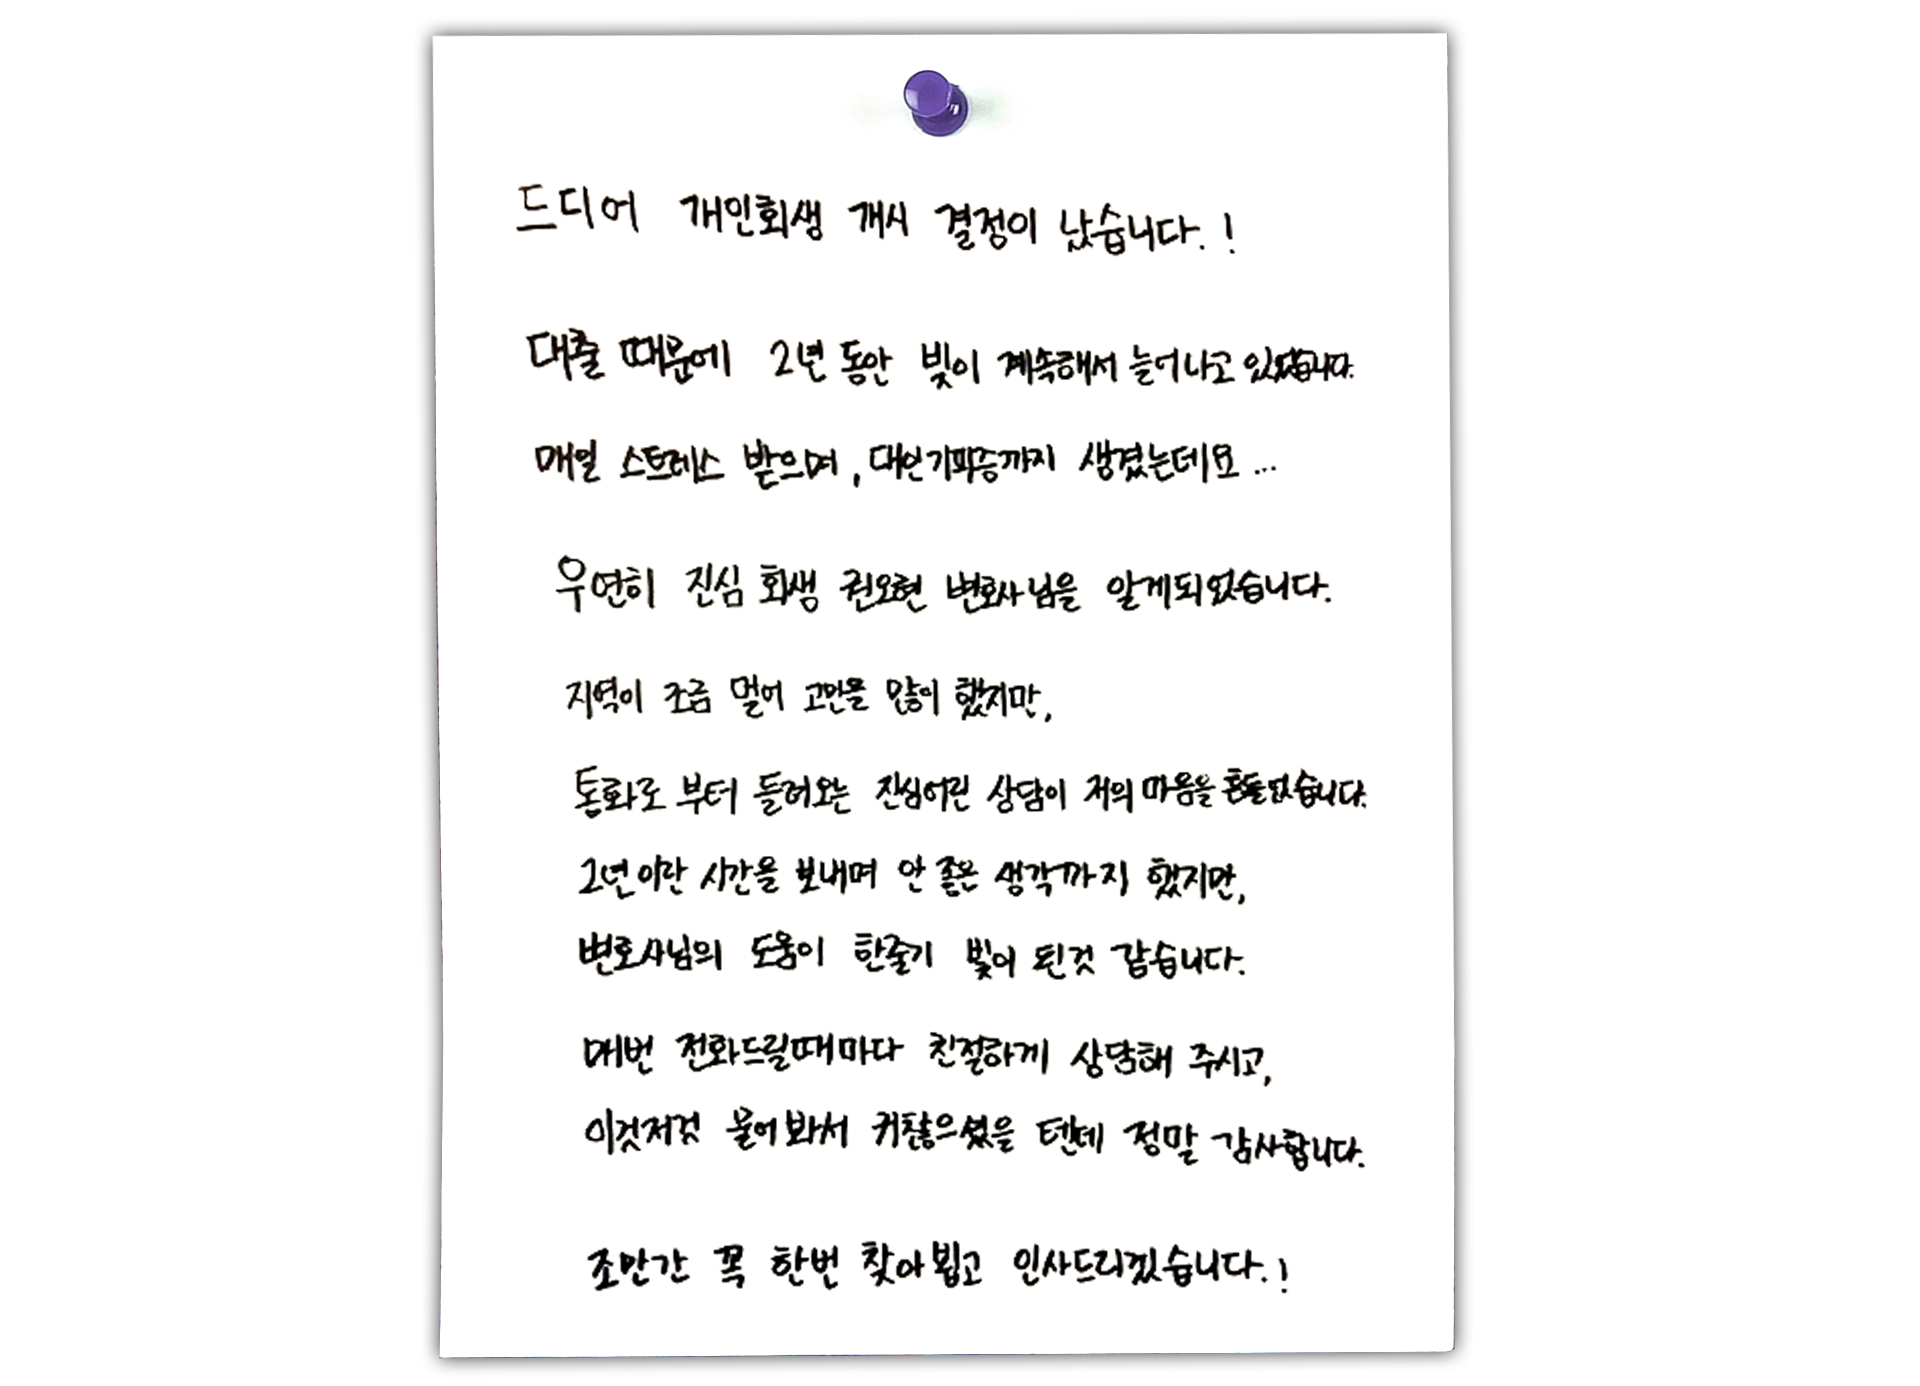 드디어 개인회생 개시 결정이 났습니다.!
대출 때문에 2년 동안 빚이 계속해서 늘어나고 있었습니다.
매일 스트레스 받으며, 대인기피증까지 생겼는데요...
우연히 진심 회생 권오현 변호사님을 알게되었습니다.
지역이 조금 멀어 고민을 많이 했지만,
통화로 부터 들려오는 진심어린 상담이 저의 마음을 흔들었습니다.
2년이란 시간을 보내며 안 좋은 생각까지 했지만,
변호사님의 도움이 한줄기 빛이 된것 같습니다.
매번 전화드릴때마다 친절하게 상담해 주시고,
이것저것 물어봐서 귀찮으셨을 텐데 정말 감사합니다.
조만간 꼭 한번 찾아뵙고 인사드리겠습니다.!